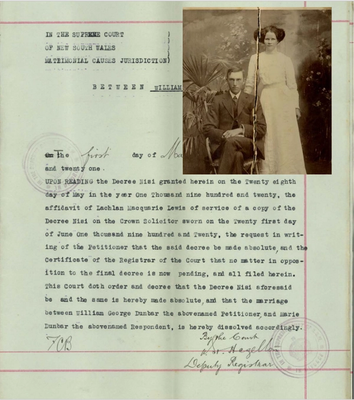 IN THE SUPREME COURT
OF NEW SOUTH WALES
MATRIMONIAL CAUSES JURISDICTION)
BETWEEN WILLIAM
On the first day of
and twenty one.
UPON READING the Decree Nisi granted herein on the Twenty eighth
day of May in the year One Thousand nine hundred and twenty, the
affidavit of Lachlan Macquarie Lewis of service of a copy of the
Decree Nisi on the Crown Solicitor sworn on the Twenty first day
of June One thousand nine hundred and Twenty, the request in writ-
ing of the Petitioner that the said decree be made absolute, and the
Certificate of the Registrar of the Court that no matter in oppos-
ition to the final decree is now pending, and all filed herein.
This Court doth order and decree that the Decree Nisi aforesaid
be and the same is hereby made absolute, and that the marriage
between William George Dunbar the abovenamed Petitioner, and Marie
Dunbar the abovenamed Respondent, is hereby dissolved accordingly.
By the Court
Deputy Registrar